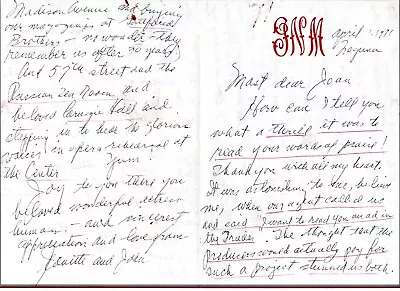 JNM
April 1971
Daytime
Most dear Joan
How can I tell you
what a thrill it was to
read your words of praise!
Thank you with all my heart.
It was astonishing to me, believe
me, when our agent called us
and said "I want to read you an ad in
the Trades". The thought that the
producers would actually pay for
such a project stunned us both.
Madison Avenue and buying
our magazines at
Brothers - no wonder they
remember us after 30 years)
And 57th street and the
Russian Tea Room and
beloved Carnegie Hall and
stepping in to hear the glorious
voices in opera rehearsal at
the Center
Joy to you there you
beloved wonderful actress
human! - and sincerest
appreciation and love from
Jeanette and